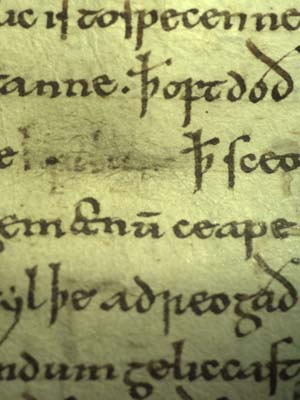 lic is to specenne
tanne · ꝥ oft doð
e ꝥ sceo
gemænū ceape
ylþe adreogað
ndum geliccast